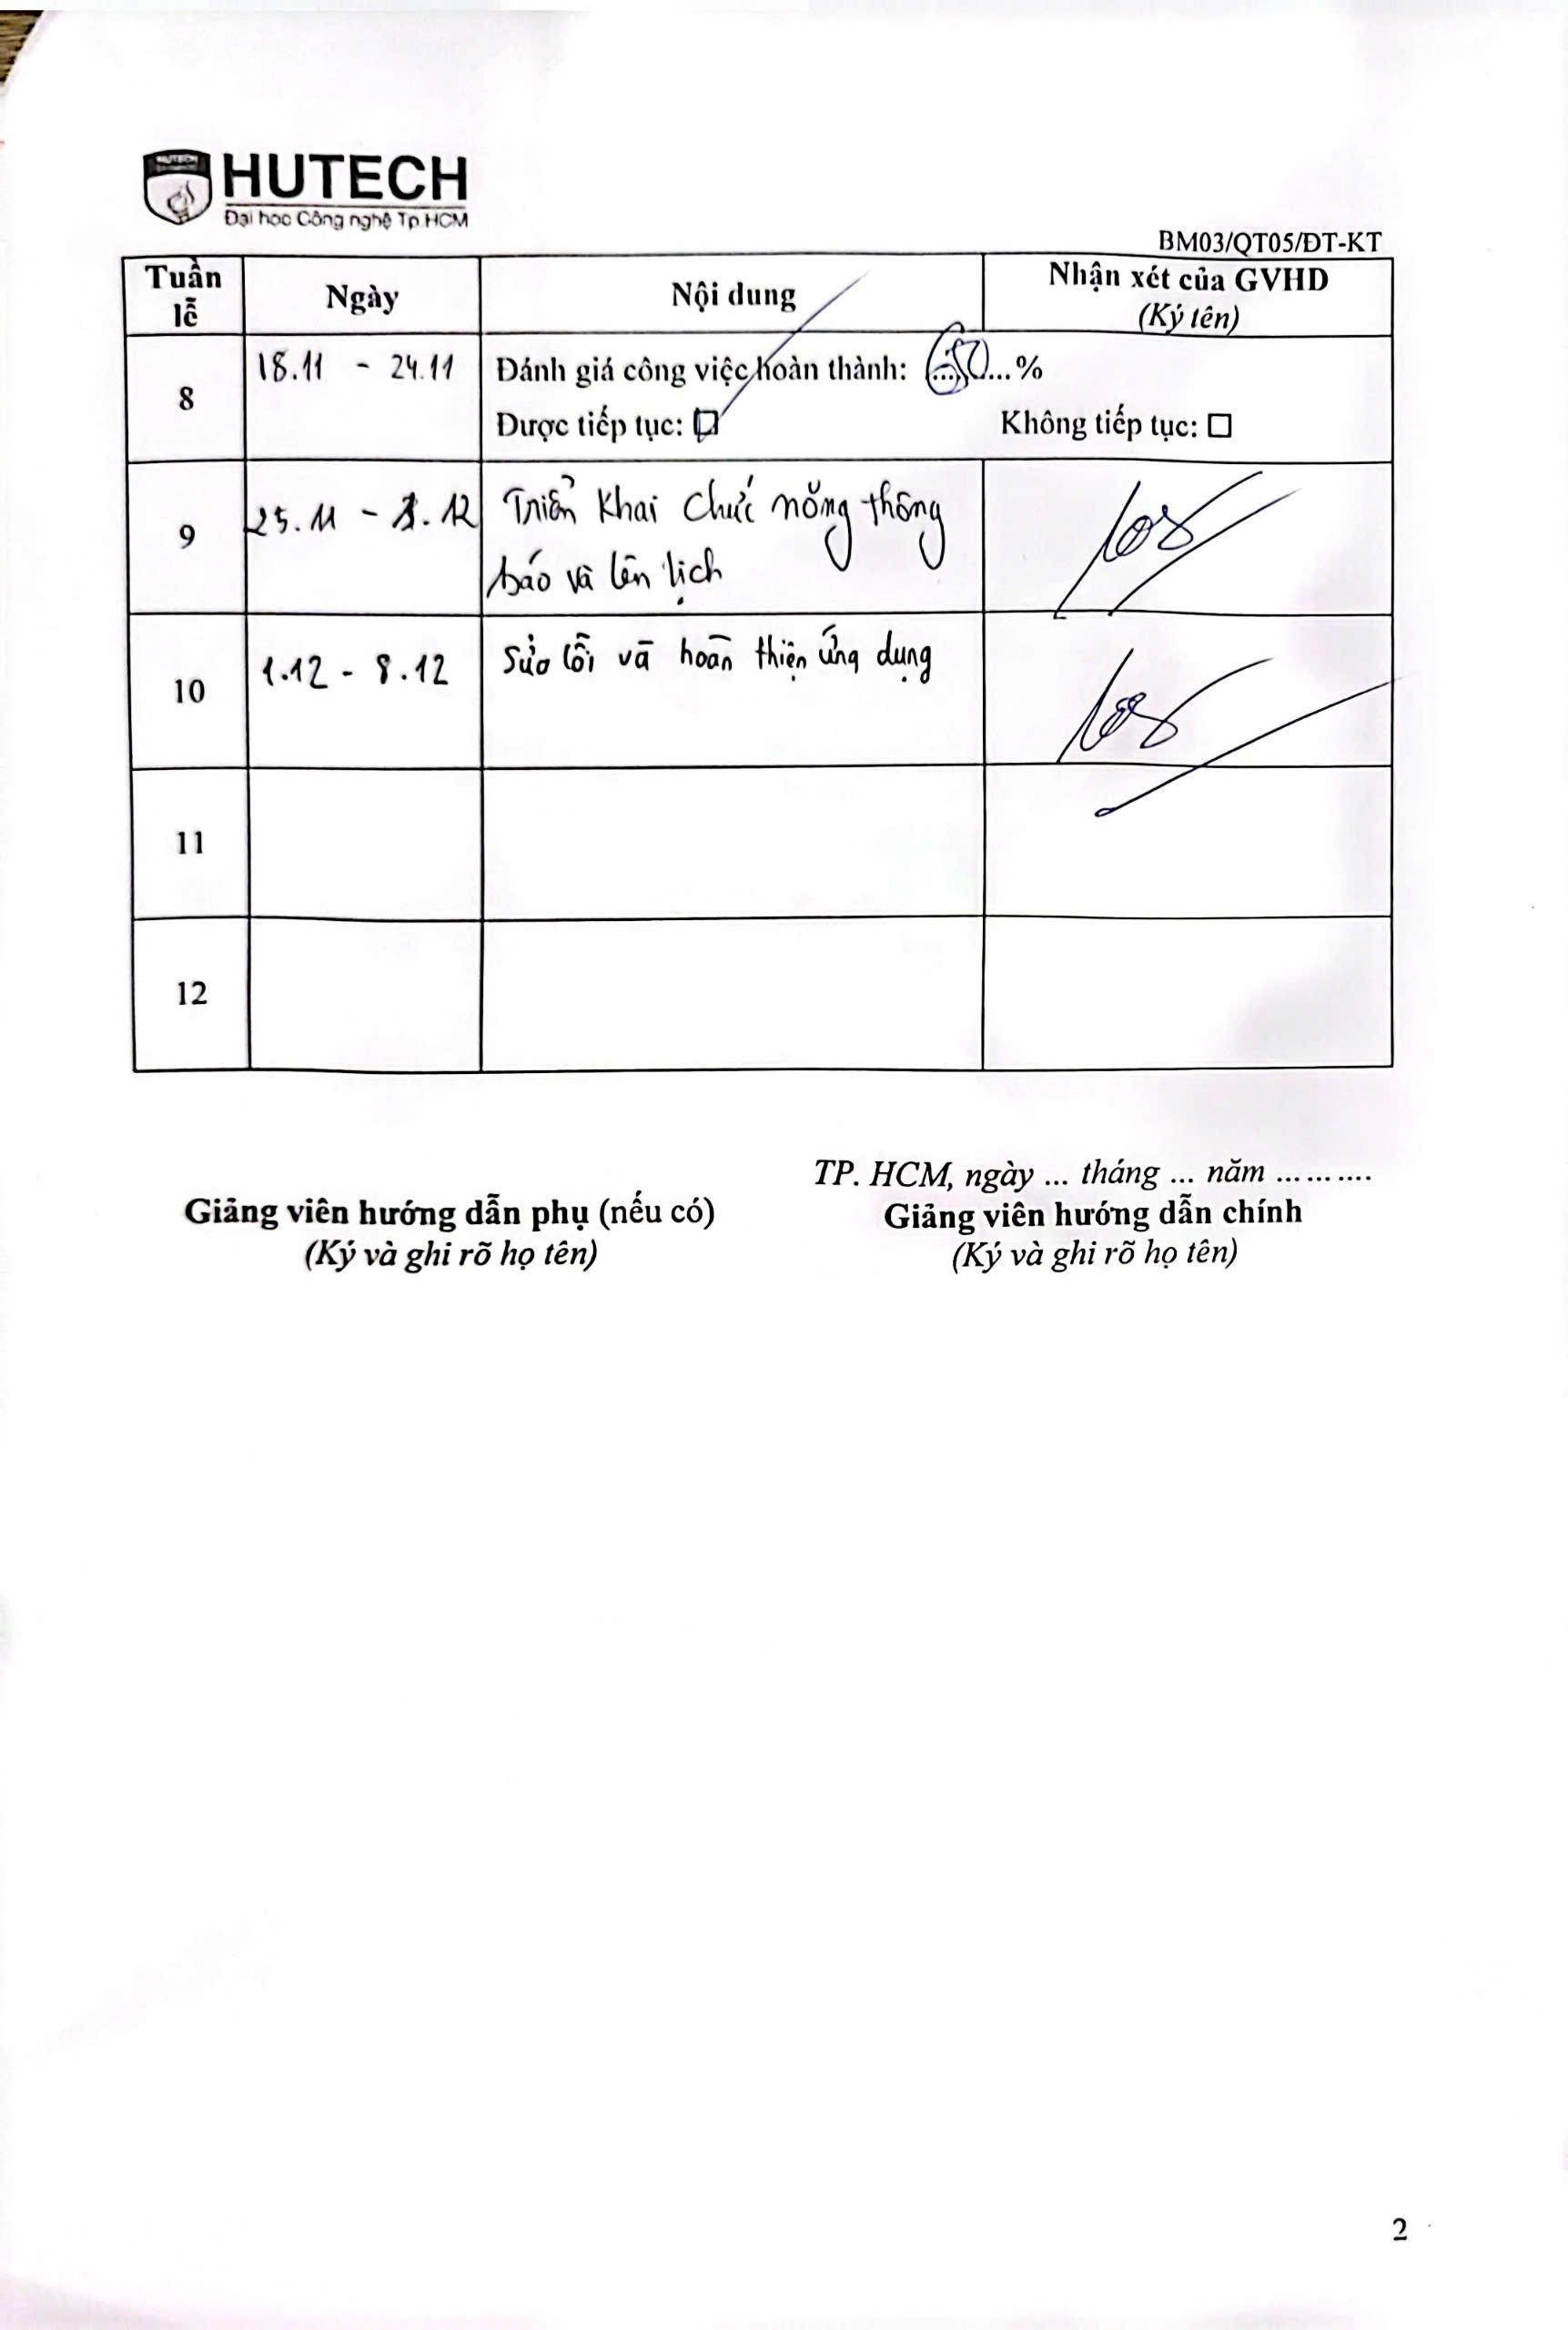 HUTECH
Đại học Công nghệ Tp.HCM
BM03/QT05/ĐT-KT
Tuần lễ
Ngày
Nội dung
Nhận xét của GVHD
(Ký tên)
8
18.11 - 24.11
Đánh giá công việc hoàn thành: ...%
Được tiếp tục: ☑ Không tiếp tục: ☐
9
25.11 - 1.12
Triển khai chức năng thông
báo và lên lịch
10
1.12 - 8.12
Sửa lỗi và hoàn thiện ứng dụng
11
12
TP. HCM, ngày ... tháng ... năm ..........
Giảng viên hướng dẫn phụ (nếu có)
(Ký và ghi rõ họ tên)
Giảng viên hướng dẫn chính
(Ký và ghi rõ họ tên)
2